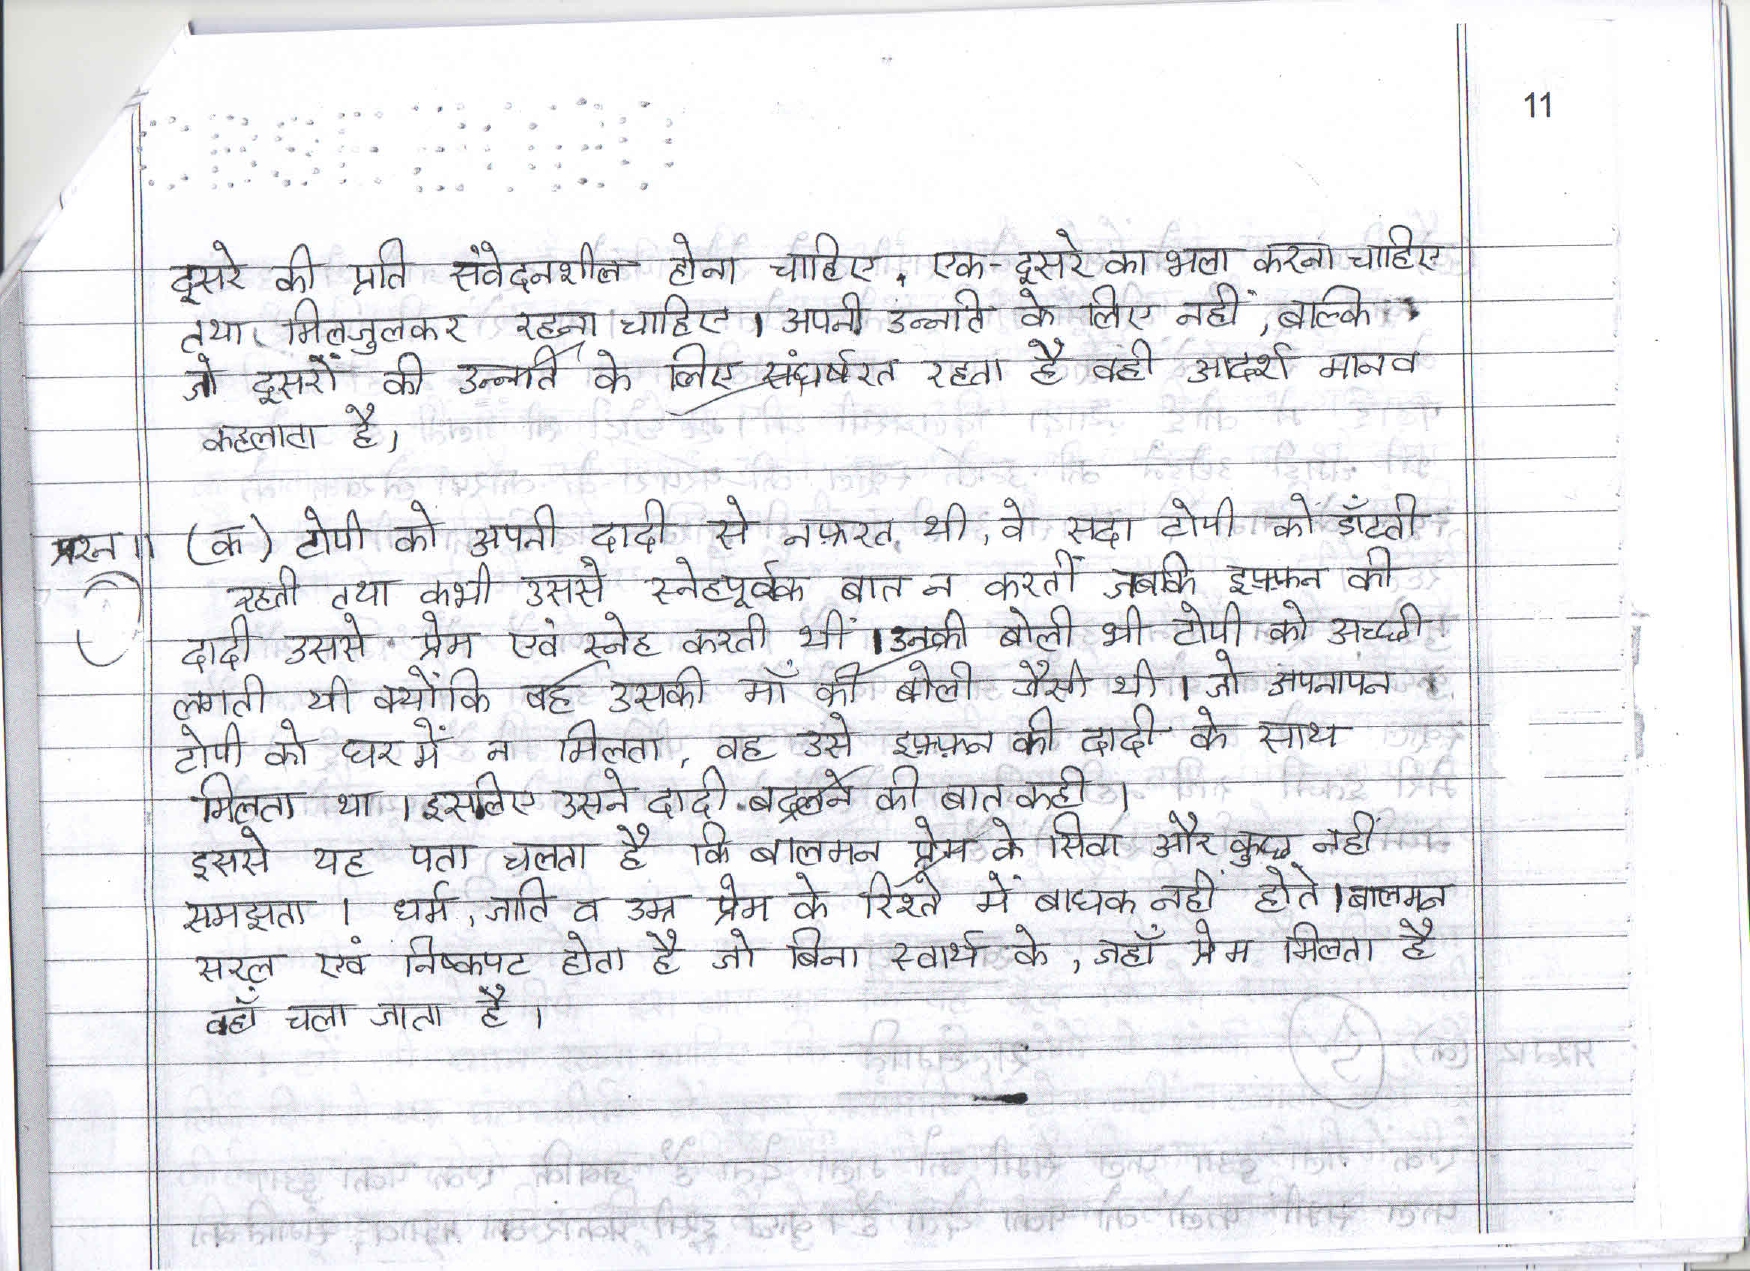 11
दूसरे की प्रति संवेदनशील होना चाहिए, एक-दूसरे का भला करना चाहिए
तथा मिलजुलकर रहना चाहिए। अपनी उन्नति के लिए नहीं, बल्कि
जो दूसरों की उन्नति के लिए संघर्षरत रहता है वही आदर्श मानव
कहलाता है।
प्रश्न 11 (क) टोपी को अपनी दादी से नफ़रत थी, वे सदा टोपी को डाँटती
रहती तथा कभी उससे स्नेहपूर्वक बात न करतीं जबकि इफ़्फ़न की
दादी उससे प्रेम एवं स्नेह करती थीं। उनकी बोली भी टोपी को अच्छी
लगती थी क्योंकि वह उसकी माँ की बोली जैसी थी। जो अपनापन
टोपी को घर में ना मिलता, वह उसे इफ़्फ़न की दादी के साथ
मिलता था। इसलिए उसने दादी बदलने की बात कही।
इससे यह पता चलता है कि बालमन प्रेम के सिवा और कुछ नहीं
समझता। धर्म, जाति व उम्र प्रेम के रिश्ते में बाधक नहीं होते। बालमन
सरल एवं निष्कपट होता है जो बिना स्वार्थ के, जहाँ प्रेम मिलता है
वहाँ चला जाता है।